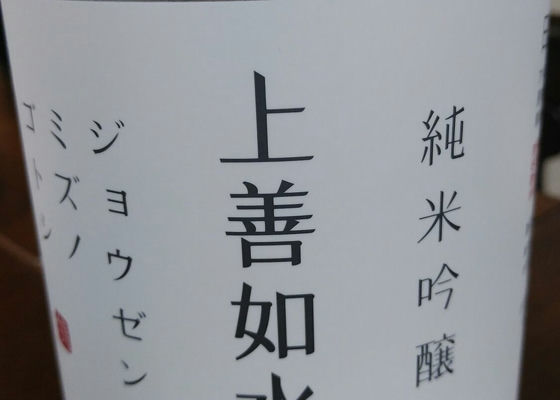 純米吟醸
上善如水
ジョウゼン
ミズノ
ゴトシ